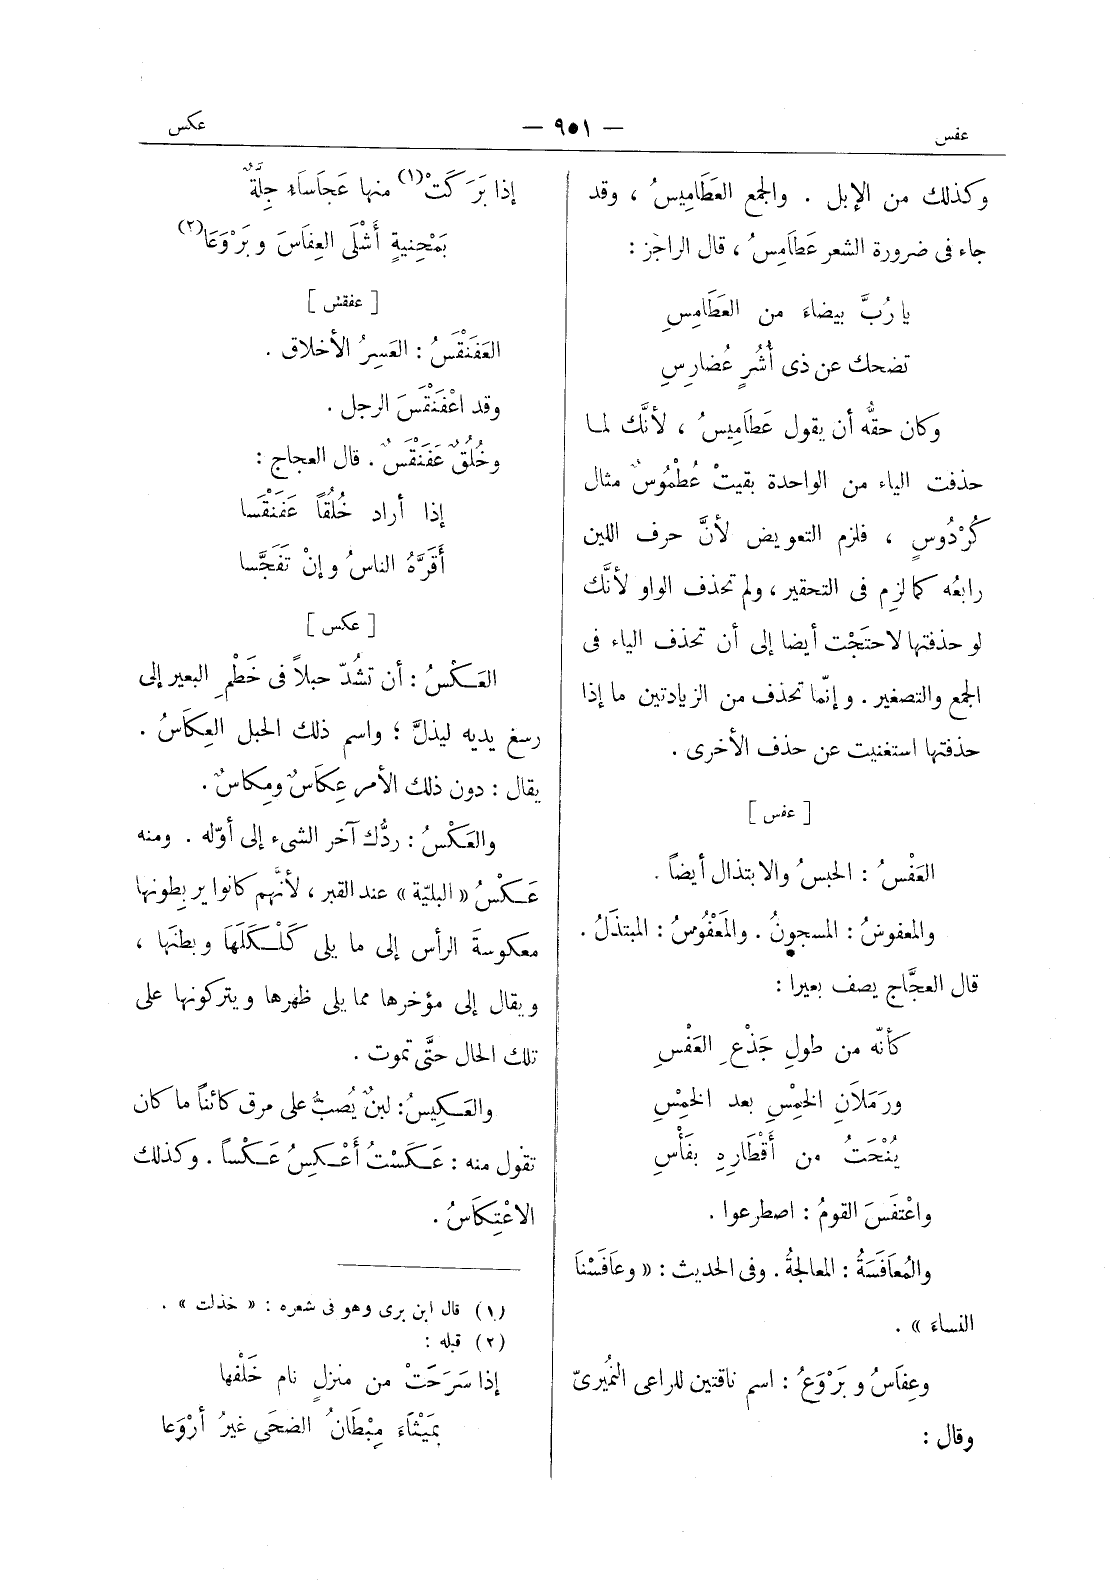 عفس
— ٩٥١ —
عكس
وكذلك من الإبل . والجمع العَطَامِيسُ ، وقد
جاء فى ضرورة الشعر عَطَامِسُ ، قال الراجز :
يا رُبَّ بيضاءَ من العَطَامِسِ
تضحك عن ذى أُشُرٍ عُضارِسِ
وكان حقُّه أن يقول عَطَامِيسُ ، لأنَّك لما
حذفت الياء من الواحدة بقيتْ عُطْمُوسٌ مثال
كُرْدُوسٍ ، فلزم التعويض لأنَّ حرف اللين
رابعُه كما لزم فى التحقير ، ولم تحذف الواو لأنَّك
لو حذفتها لاحتَجْت أيضا إلى أن تحذف الياء فى
الجمع والتصغير . وإنّما تحذف من الزيادتين ما إذا
حذفتها استغنيت عن حذف الأخرى .
[ عفس ]
العَفْسُ : الحبسُ والابتذال أيضاً .
والمعفوسُ : المسجونُ . والمَعْفُوسُ : المبتذَلُ .
قال العجَّاج يصف بعيرا :
كأنّه من طولِ جَذْعِ العَفْسِ
ورَمَلَانِ الخِمْسِ بعد الخِمْسِ
يُنْحَتُ من أَقْطَارِهِ بفَأْسِ
واعْتفَسَ القومُ : اصطرعوا .
والمُعَافَسَةُ : المعالجةُ . وفى الحديث : « وعَافَسْنَا
النساءَ » .
وعِفَاسُ و بَرْوَعُ : اسم ناقتين للراعى النُمَيرىّ
وقال :
إذا بَرَكَتْ (١) منها عَجَاسَاءِ جِلَّةٌ
بمَحْنِيةٍ أَشْلَى العِفَاسَ و بَرْوَعَا (٢)
[ عفقش ]
العَفَنْقَسُ : العَسِرُ الأخلاق .
وقد اعْفَنْقَسَ الرجل .
وخُلُقٌ عَفَنْقَسٌ . قال العجاج :
إذا أراد خُلُقاً عَفَنْقَسا
أَقَرَّهُ الناسُ وإنْ تَفَجَّسا
[ عكس ]
العَكْسُ : أن تشُدّ حبلاً فى خَطْمِ البعير إلى
رسغ يديه ليذلَّ ؛ واسم ذلك الحبل العِكَاسُ .
يقال : دون ذلك الأمر عِكَاسٌ ومِكاسٌ .
والعَكْسُ : ردُّك آخر الشىء إلى أوّله . ومنه
عَكْسُ « البليّة » عند القبر ، لأنَّهم كانوا يربطونها
معكوسةَ الرأس إلى ما يلى كَلْكَلَهَا وبطنَها ،
ويقال إلى مؤخرها مما يلى ظهرها ويتركونها على
تلك الحال حتَّى تموت .
والعَكِيسُ : لبنٌ يُصبُّ على مرق كائناً ما كان
تقول منه : عَكَسْتُ أَعْكِسُ عَكْساً . وكذلك
الاعْتِكَاسُ .
(١) قال ابن برى وهو فى شعره : « خذلت » .
(٢) قبله :
إذا سَرَحَتْ من منزلٍ نام خَلْفَها
بمَيْثَاءَ مِبْطَانُ الضحَى غيرُ أرْوَعا